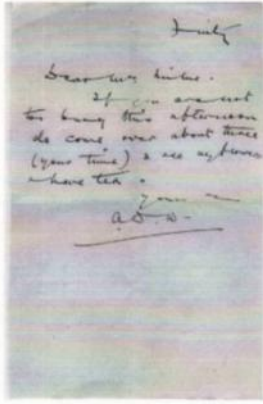 Dear Mrs
If you are not
too busy this afternoon
do come over about three
(your time) & see my
& have tea.
Yours
A. D. W.